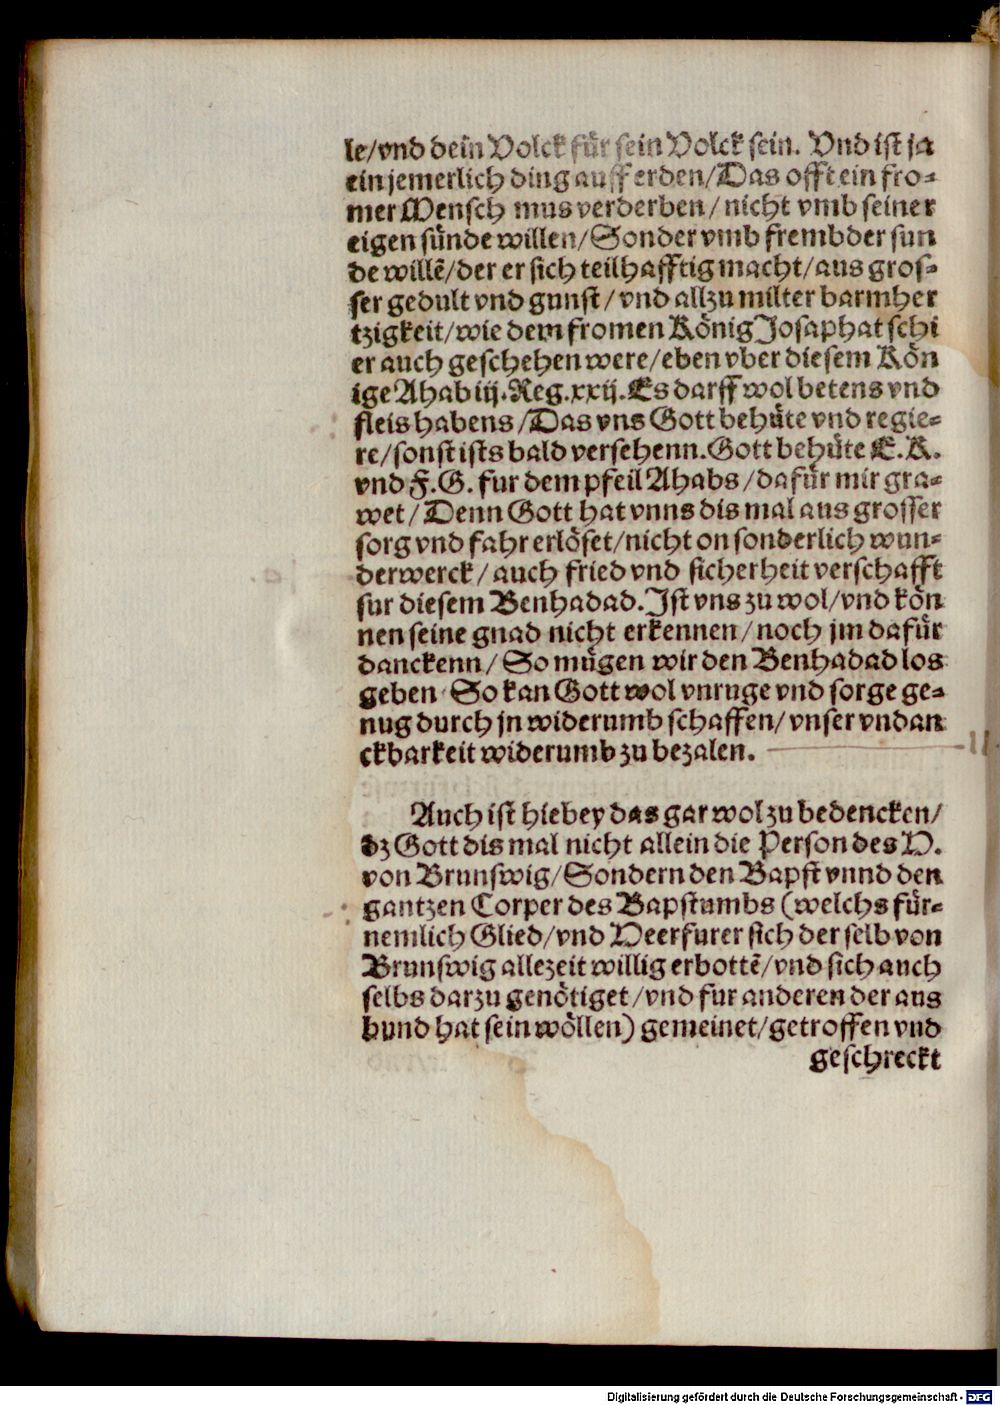 le/vnd dein Volck für sein Volck sein. Vnd ist ja
ein jemerlich ding auff erden/Das offt ein fro-
mer Mensch mus verderben/nicht vmb seiner
eigen sünde willen/Sonder vmb frembder sun
de willē/der er sich teilhafftig macht/aus gros-
ser gedult vnd gunst/vnd allzu milter barmher
tzigkeit/wie dem fromen König Josaphat schi
er auch geschehen were/eben vber diesem Kön
ige Ahab iij.Reg.xxij.Es darff wol betens vnd
fleis habens/Das vns Gott behüte vnd regie-
re/sonst ists bald versehenn.Gott behüte E.K.
vnd F.G. fur dem pfeil Ahabs/dafür mir gra-
wet/Denn Gott hat vnns dis mal aus grosser
sorg vnd fahr erlöset/nicht on sonderlich wun-
derwerck/auch fried vnd sicherheit verschafft
fur diesem Benhadad.Ist vns zu wol/vnd kön
nen seine gnad nicht erkennen/noch jm dafür
danckenn/So mügen wir den Benhadad los
geben So kan Gott wol vnruge vnd sorge ge-
nug durch jn widerumb schaffen/vnser vndan
ckbarkeit widerumb zu bezalen.
Auch ist hiebey das gar wol zu bedencken/
dz Gott dis mal nicht allein die Person des H.
von Brunswig/Sondern den Bapst vnnd den
gantzen Corper des Bapstumbs (welchs für-
nemlich Glied/vnd Heerfurer sich der selb von
Brunswig allezeit willig erbottē/vnd sich auch
selbs darzu genötiget/vnd fur anderen der aus
bund hat sein wöllen) gemeinet/getroffen vnd
geschreckt
Digitalisierung gefördert durch die Deutsche Forschungsgemeinschaft - DFG